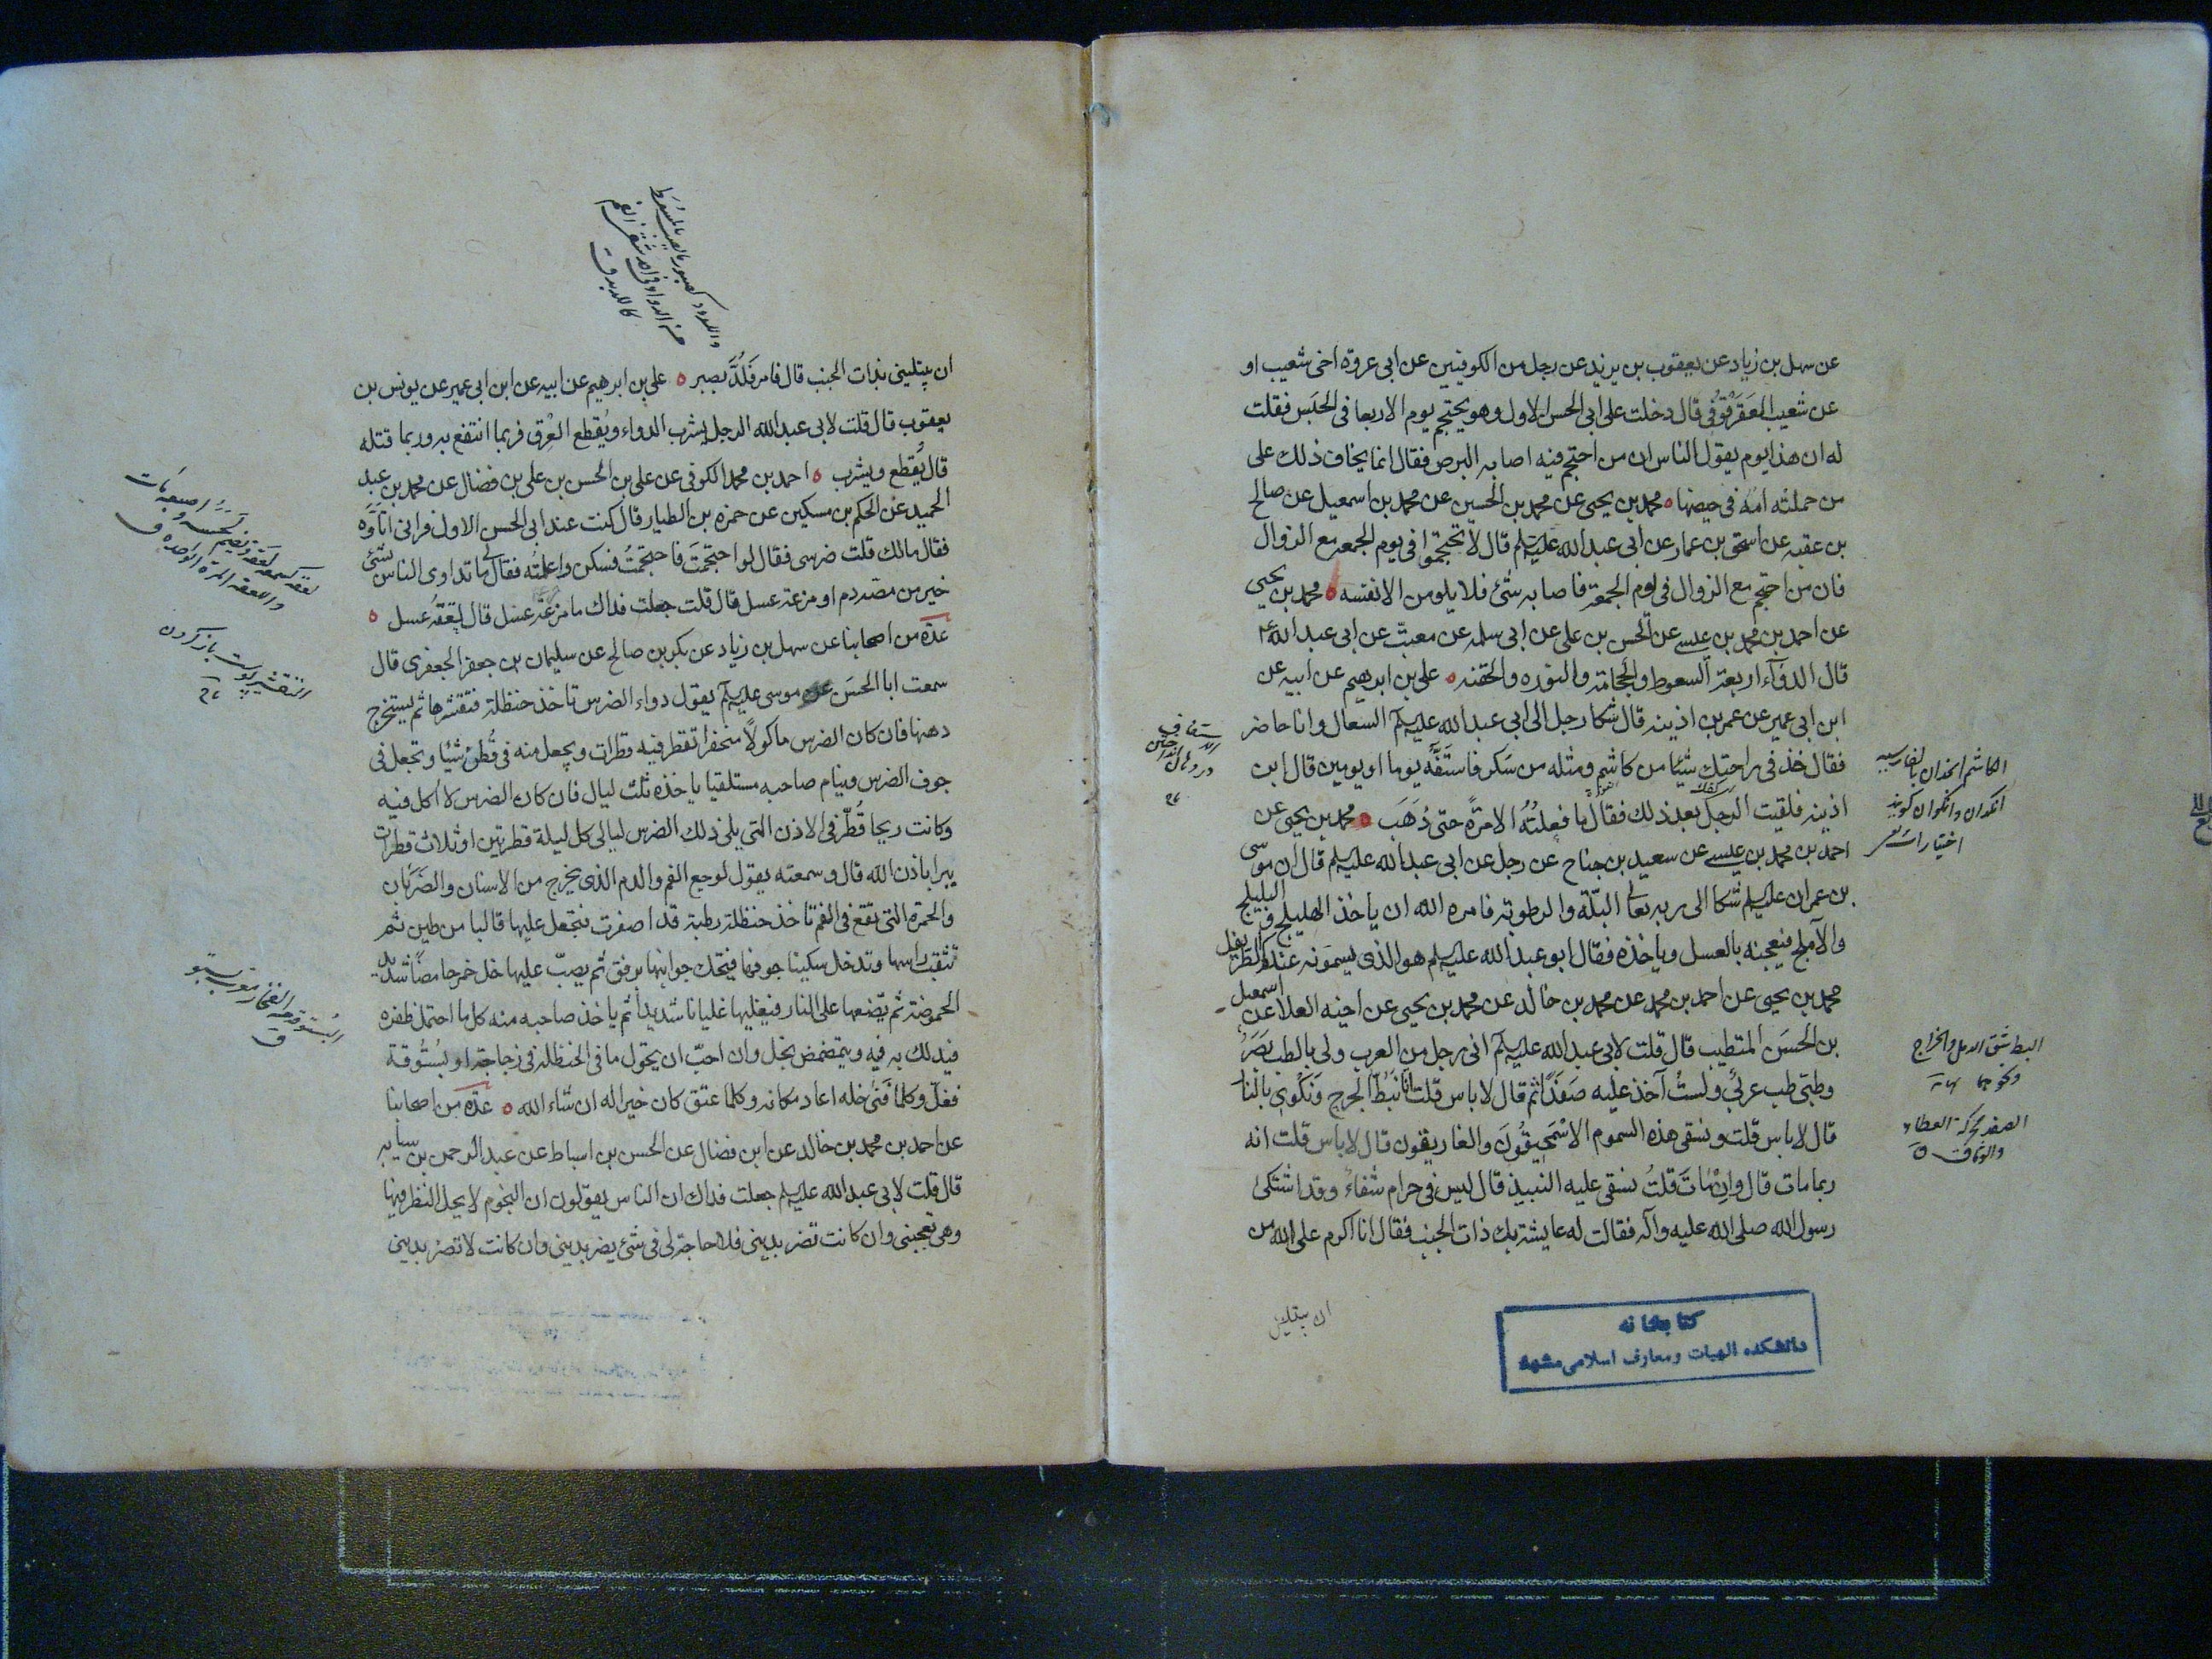 عن سهل بن زياد عن يعقوب بن يزيد عن رجل من الكوفيين عن ابى عروة اخى شعيب او
عن شعيب العَقَرقُوُفى قال دخلت على ابى الحسن الاول وهو يحتجم يوم الاربعا فى الحَبَس فقلت
له ان هذا يوم يقول الناس ان من احتجم فيه اصابه البرص فقال انما يخاف ذلك على
من حملته امّه فى حيضها ه محمد بن يحيى عن محمد بن الحسين عن محمد بن اسمعيل عن صالح
بن عقبه عن اسحق بن عمار عن ابى عبد الله عليه السلم قال لا تحتجموا فى يوم الجمعه مع الزوال
فان من احتجم مع الزوال فى يوم الجمعة فاصابه شئ فلا يلومن الا نفسه ه محمد بن يحيى
عن احمد بن محمد بن عيسى عن الحسن بن على عن ابى سلمه عن معتب عن ابى عبد الله ع
قال الدوآء اربعة السعوط والحجامة والنوره والحقنه ه على بن ابرهيم عن ابيه عن
ابن ابى عمير عن عمر بن اذينه قال شكا رجل الى ابى عبد الله عليه السلم السعال وانا حاضر
فقال خذ فى راحتك شيئا من كاشم ومثله من سكر فاستفّه يوما او يومين قال ابن
اذينه فلقيت الرجل بعد ذلك فقال ما فعلتُهُ الا مرّةً حتى ذَهَبَ ه محمد بن يحيى عن
احمد بن محمد بن عيسى عن سعيد بن جناح عن رجل عن ابى عبد الله عليه السلم قال ان موسى
بن عمران عليه السلم شكا الى ربه تعالى البلّة والرطوبة فامره الله ان ياخذ الهليلج والبليلج
والآملج فيعجنه بالعسل وياخذه فقال ابو عبد الله عليه السلم هو الذى يسمونه عندكم الطريفل
محمد بن يحيى عن احمد بن محمد عن محمد بن خالد عن محمد بن يحيى عن اخيه العلا عن اسمعيل
بن الحسَن المتطبب قال قلت لابى عبد الله عليه السلم انى رجل من العرب ولى بالطب بَصَرٌ
وطبّى طب عربىّ ولستُ آخذ عليه صَفَدًا ثم قال لا باس قلت انّا نَبُطّ الجرح ونَكْوى بالنار
قال لا باس قلت ونسقى هذه السموم الاسْمَحِيقُونَ والغاريقون قال لا باس قلت انه
ربما مات قال وان مَاتَ قلتُ نسقى عليه النبيذ قال ليس فى حرام شفاءٌ وقد اشتكىٰ
رسول الله صلى الله عليه وآله فقالت له عايشة بك ذات الجنب فقال انا اكرم على الله من
ان يبتليني
الكاشم انجدان بالفارسيه
انكدان وانكوان كويند
اختيارات
البط شق الدمل والخراج
ونحوهما
الصفد محركة العطاء
والوثاق ق
كتابخانه
دانشكده الهيات ومعارف اسلامى مشهد
ان يبتلينى بذات الجنب قال فامر فَلُدَّ بصبر ه على بن ابرهيم عن ابيه عن ابن ابى عمير عن يونس بن
يعقوب قال قلت لابى عبد الله الرجل يشرب الدواء ويُقطع العِرْق فربما انتفع به وربما قتله
قال يُقطع ويشرب ه احمد بن محمد الكوفى عن على بن الحسن بن على بن فضال عن محمد بن عبد
الحميد عن الحكم بن مسكين عن حمزه بن الطيار قال كنت عند ابى الحسن الاول فرانى اتاوّه
فقال مالك قلت ضرسى فقال لو احتجمتَ فاحتجمتُ فسكن واعلمتُه فقال لى ما تداوى الناس بشئ
خير من مصّة دم او مزعة عسل قال قلت جعلت فداك ما مزعة عسل قال لعقة عسل ه
عدّة من اصحابنا عن سهل بن زياد عن بكر بن صالح عن سليمان بن جعفر الجعفرى قال
سمعت ابا الحسَن موسى عليه السلم يقول دواء الضرس تاخذ حنظلة فتقشرها ثم يستخرج
دهنها فان كان الضرس ماكولًا منحفرا تقطر فيه قطرات ويجعل منه فى قُطن شيئا وتجعل فى
جوف الضرس وينام صاحبه مستلقيا ياخذه ثلث ليال فان كان الضرس لا اكل فيه
وكانت ريحا قُطّر فى الاذن التى يلى ذلك الضرس ليالى كل ليلة قطرتين او ثلاث قطرات
يبرا باذن الله قال وسمعته يقول لوجع الفم والدم الذى يخرج من الاسنان والضَّرَبان
والحمرة التى تقع فى الفم تاخذ حنظلة رطبة قد اصفرت فتجعل عليها قالبا من طين ثم
تثقب راسها وتدخل سكينا جوفها فيحك جوانبها برفق ثم يصبّ عليها خل خمر حامضًا شديد
الحموضة ثم يضعها على النار فيغليها غليانا شديدا ثم ياخذ صاحبه منه كل ما احتمل ظفره
فيدلك به فيه ويتمضمض بخل وان احبّ ان يحول ما فى الحنظلة فى زجاجة او بُستُوقة
فعل وكلما فَنى خله اعاد مكانه وكلما عتق كان خيرا له ان شاء الله ه عدّة من اصحابنا
عن احمد بن محمد بن خالد عن ابن فضال عن الحسن بن اسباط عن عبد الرحمن بن سيابه
قال قلت لابى عبد الله عليه السلم جعلت فداك ان الناس يقولون ان النجوم لا يحل النظر فيها
وهى تعجبنى وان كانت تضر بدينى فلا حاجة لى فى شئ يضر بدينى وان كانت لا تضرّ بدينى
التقشير پوست باز كردن
البُستوقة من الفخار معرب بستو
ق